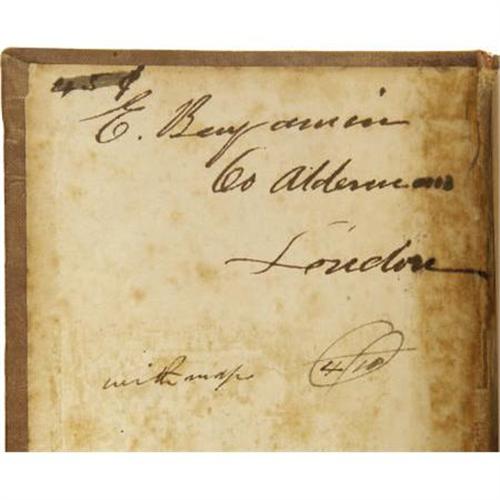 E. Benjamin
60 Alderman
London
with map 4/10